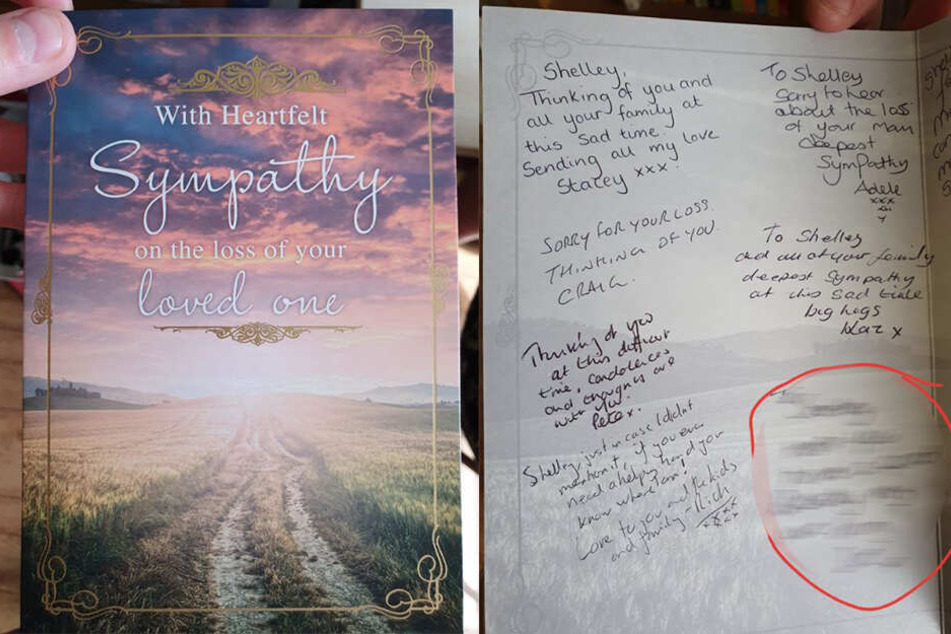 With Heartfelt
Sympathy
on the loss of your
loved one
Shelley,
Thinking of you and
all your family at
this sad time.
Sending all my love
Stacey xxx.
SORRY FOR YOUR LOSS.
THINKING OF YOU.
CRAIG.
Thinking of you
at this difficult
time, condolences
and thoughts are
with you.
Pete x.
Shelley just in case I didn't
mention it, if you ever
need a helping hand you
know where I am!
Love to you and the kids
and family - Rich
xxxx
To Shelley
Sorry to hear
about the loss
of your Mam
deepest
Sympathy
Adele
xxx
xx
x
To Shelley
and all of your family
deepest sympathy
at this sad time
big hugs
x